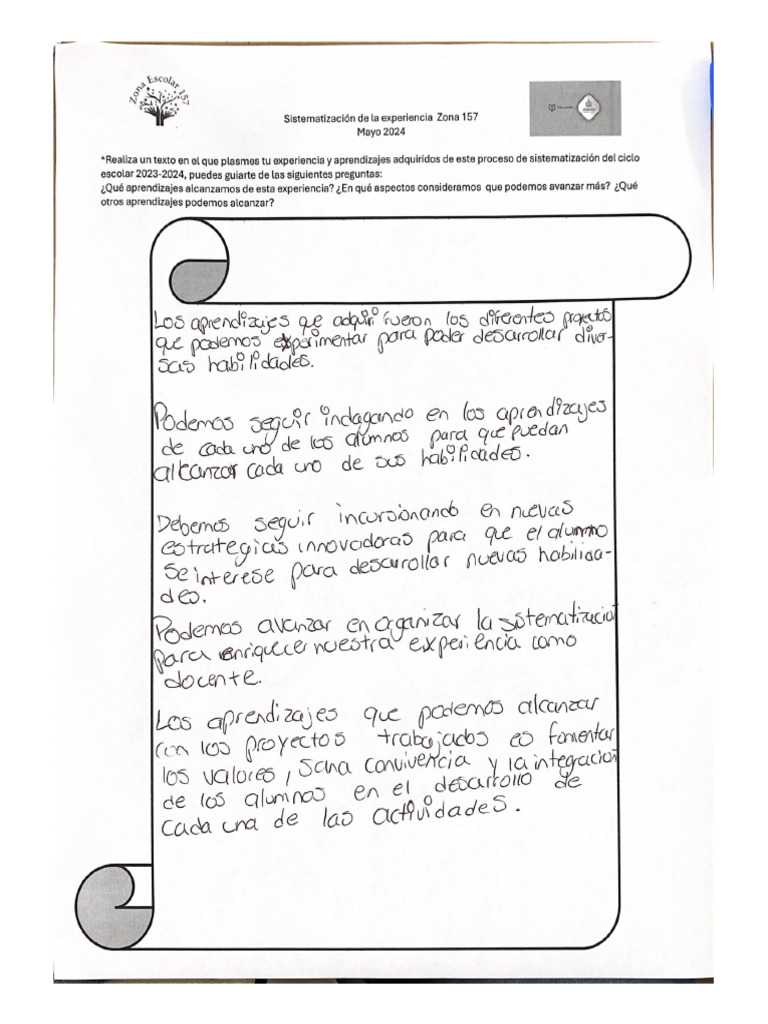 Zona Escolar 157
Sistematización de la experiencia Zona 157
Mayo 2024
*Realiza un texto en el que plasmes tu experiencia y aprendizajes adquiridos de este proceso de sistematización del ciclo
escolar 2023-2024, puedes guiarte de las siguientes preguntas:
¿Qué aprendizajes alcanzamos de esta experiencia? ¿En qué aspectos consideramos que podemos avanzar más? ¿Qué
otros aprendizajes podemos alcanzar?
Los aprendizajes que adquirí fueron los diferentes proyectos
que podemos experimentar para poder desarrollar diver-
sas habilidades.
Podemos seguir indagando en los aprendizajes
de cada uno de los alumnos para que puedan
alcanzar cada uno de sus habilidades.
Debemos seguir incursionando en nuevas
estrategias innovadoras para que el alumno
se interese para desarrollar nuevas habilida-
des.
Podemos avanzar en organizar la sistematización
para enriquecer nuestra experiencia como
docente.
Los aprendizajes que podemos alcanzar
con los proyectos trabajados es fomentar
los valores, sana convivencia y la integración
de los alumnos en el desarrollo de
cada una de las actividades.